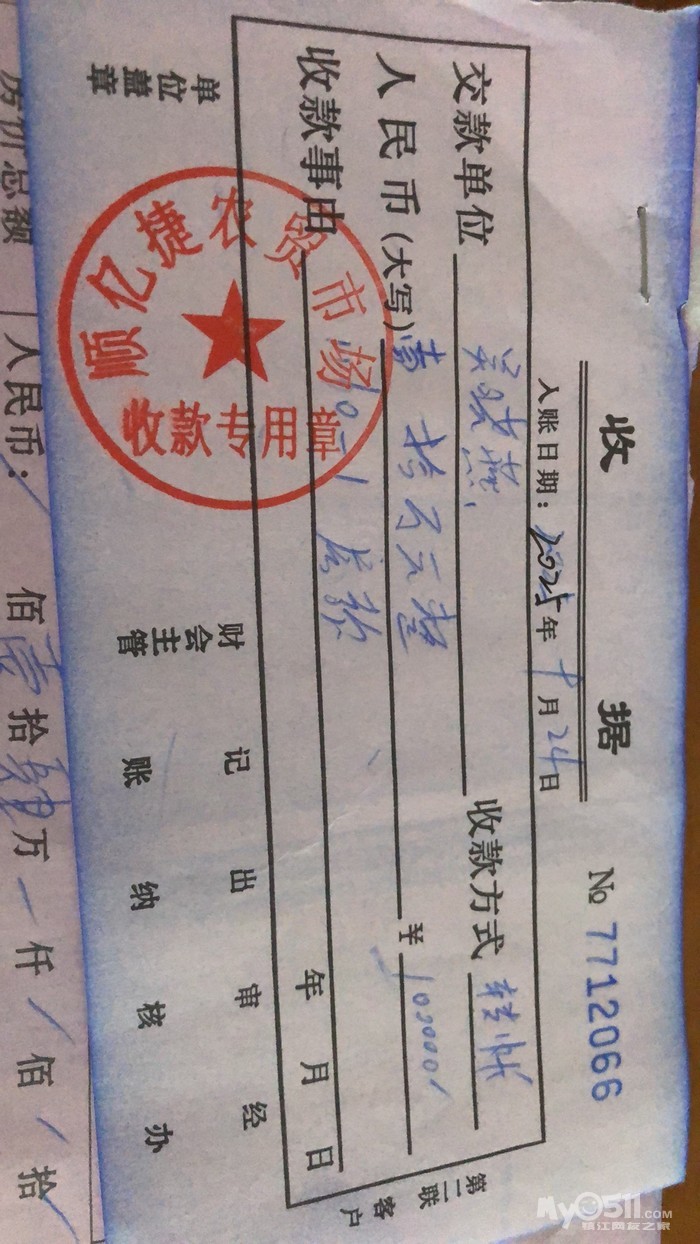 收 据
No 7712066
入账日期：2025年9月24日
交款单位 吴晓燕 收款方式 转帐
人民币(大写) 壹拾万元整 ¥ 100000
收款事由
年 月 日
顺亿捷农贸市场
收款专用章
单位盖章 财会主管 记账 出纳 审核 经办
第二联 客户
房价总额 人民币： 佰壹拾肆万 仟 佰 拾
My0511.com
镇江网友之家